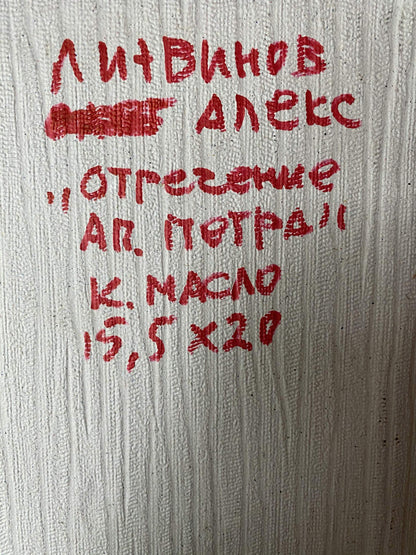 ЛИТВИНОВ
АЛЕКС
"ОТРЕЧЕНИЕ
АП. ПЕТРА"
К. МАСЛО
15,5 х 20